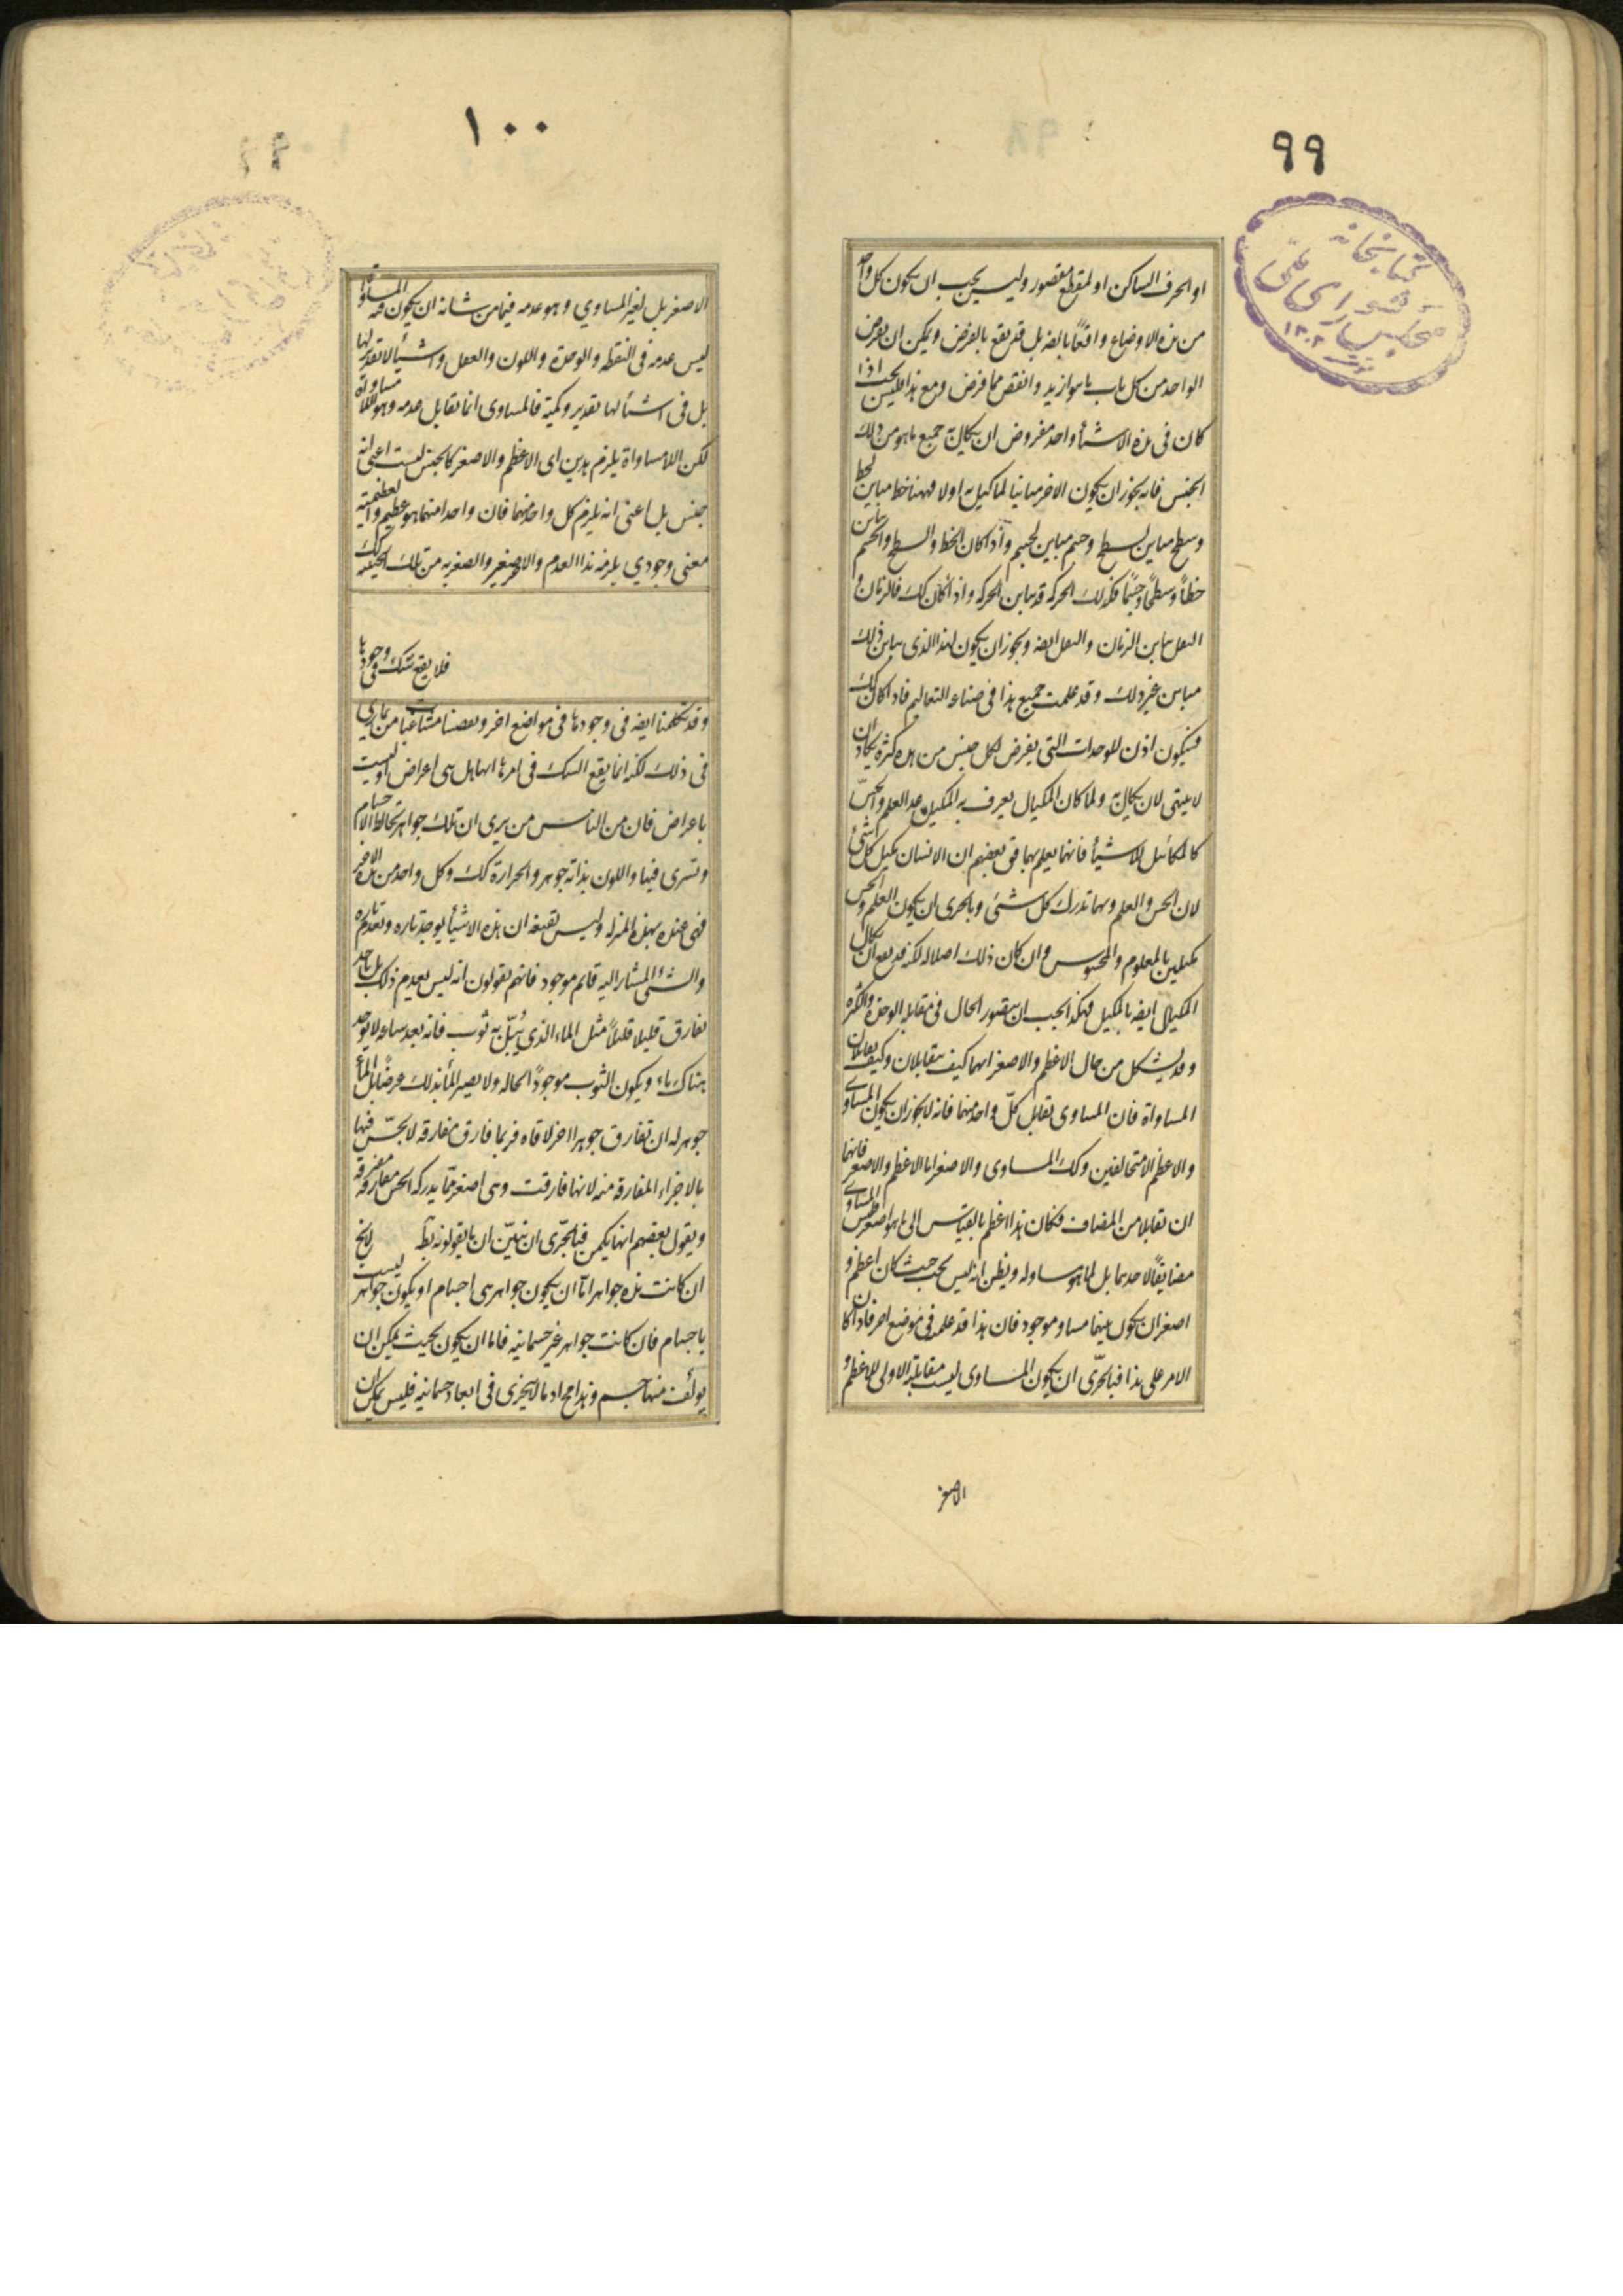 ٩٩
كتابخانه
مجلس شورای ملی
١٣٠٢
او الحرف الساكن او لمقطع مقصور وليس يجب ان يكون كل واحد
من هذه الاوضاع واقعًا بالضه بل قد يقع بالفرض ويمكن ان يفرض
الواحد من كل باب ما هو ازيد وانقص مما فرض ومع هذا فليس يجب اذا
كان فى هذه الاشيأ واحد مفروض ان يكال به جميع ما هو من ذلك
الجنس فانه يجوز ان يكون الاخر مباينا لما كيل به اولا فههنا خط مباين لخط
وسطح مباين لسطح وجسم مباين لجسم واذا كان الخط والسطح والجسم يباين
خطاً وسطحًا وجسمًا فكذلك الحركه قد يباين الحركه واذا كان كك فالزمان و
الثقل يباين الزمان والثقل ايضه ويجوز ان يكون لهذا الذى يباين ذلك
مباين غير ذلك وقد علمت جميع هذا فى صناعه التعاليم فاذا كان كك
فسيكون اذن للوحدات التى يفرض لكل جنس من هذه كثره يكاد ان
لا ينتهى لان يكال به ولما كان المكيال يعرف به المكيل عد العلم والحسّ
كالمكائيل للاشيأ فانهما يعلم بهما فق بعضهم ان الانسان يكيل كل شئ
لان الحس والعلم وبهما تدرك كل شئى وبالحرى ان يكون العلم والحس
مكيلين بالمعلوم والمحسوس وان كان ذلك اصلا له لكنه قد يقع ان يكال
المكيال ايضه بالمكيل فهكذا يجب ان يتصور الحال فى مقابله الوحدة والكثره
وقد يشكل من حال الاعظم والاصغر انهما كيف يتقابلان وكيف يقابلان
المساواة فان المساوى يقابل كلّ واحد منهما فانه لا يجوز ان يكون المساوى
والاعظم الا متخالفين وكك المساوى والاصغر اما الاعظم والاصغر فانهما
ان تقابلا من المضاف فكان هذا اعظم بالقياس الى ما هو اصغر فليس المساوى
مضايفًا لاحدهما بل لما هو مساو له ويظن انه ليس يجب حيث كان اعظم و
اصغر ان يكون بينهما مساو موجود فان هذا قد علمته فى موضع اخر فاذا كان
الامر على هذا فبالحرّى ان يكون المساوى ليست مقابلته الاولى للاعظم و
الاصغر
١٠٠
الاصغر بل لغير المساوي وهو عدمه فيما من شانه ان يكون فيه المساواة
ليس عدمه فى النقطه والوحدة واللون والعقل واشيأ لا تقدير لها
بل فى اشيأ لها تقدير وكمية فالمساوى انما تقابل عدمه وهو اللامساواة
لكن اللامساواة يلزم هذين اى الاعظم والاصغر كالجنس لست اعنى انه
جنس بل اعنى انه يلزم كل واحد منهما فان واحدا منهما هو عظيم والعظيمية
معنى وجودي يلزمه هذا العدم والاخر صغير والصغريه من تلك الحيثيه كك
فلا يقع شك فى وجودها
وقد تكلمنا ايضه فى وجودها فى مواضع اخر ونقضنا متشاغبا من يمارى
فى ذلك لكنه انما يقع الشك فى امرها انها هل هى اعراض او ليست
باعراض فان من الناس من يرى ان تلك جواهر تخالط الاجسام
وتسرى فيها واللون بذاته جوهر والحرارة كك وكل واحد من هذه الاخر
فهى عنده بهذه المنزله وليس يقنعه ان هذه الاشيأ يوجد تاره وتعدم تاره
والشئ المشار اليه قائم موجود فانهم يقولون انه ليس يعدم ذلك بل ياخذ
يفارق قليلا قليلاً مثل الماء الذى يُبَلّ به ثوب فانه بعد ساعه لا يوجد
هناك ماء ويكون الثوب موجودًا بحاله ولا يصير المأ بذلك عرضًا بل المأ
جوهر له ان تفارق جوهرا اخر لاقاه فربما فارق مفارقه لا يحسّ فيها
بالاجزاء المفارقة منه لانها فارقت وهى اصغر مما يدركه الحس مفارقة مفترقة
ويقول بعضهم انها يكمن فبالحرّى ان نبيّن ان ما يقولونه بط لا يخ
ان كانت هذه جواهر امّا ان يكون جواهر هى اجسام او يكون جواهر ليست
باجسام فان كانت جواهر غير جسمانيه فاما ان يكون بحيث يمكن ان
يؤلّف منها جسم وهذا مح اذ ما لا يتجزى فى ابعاد جسمانيه فليس يمكن ان